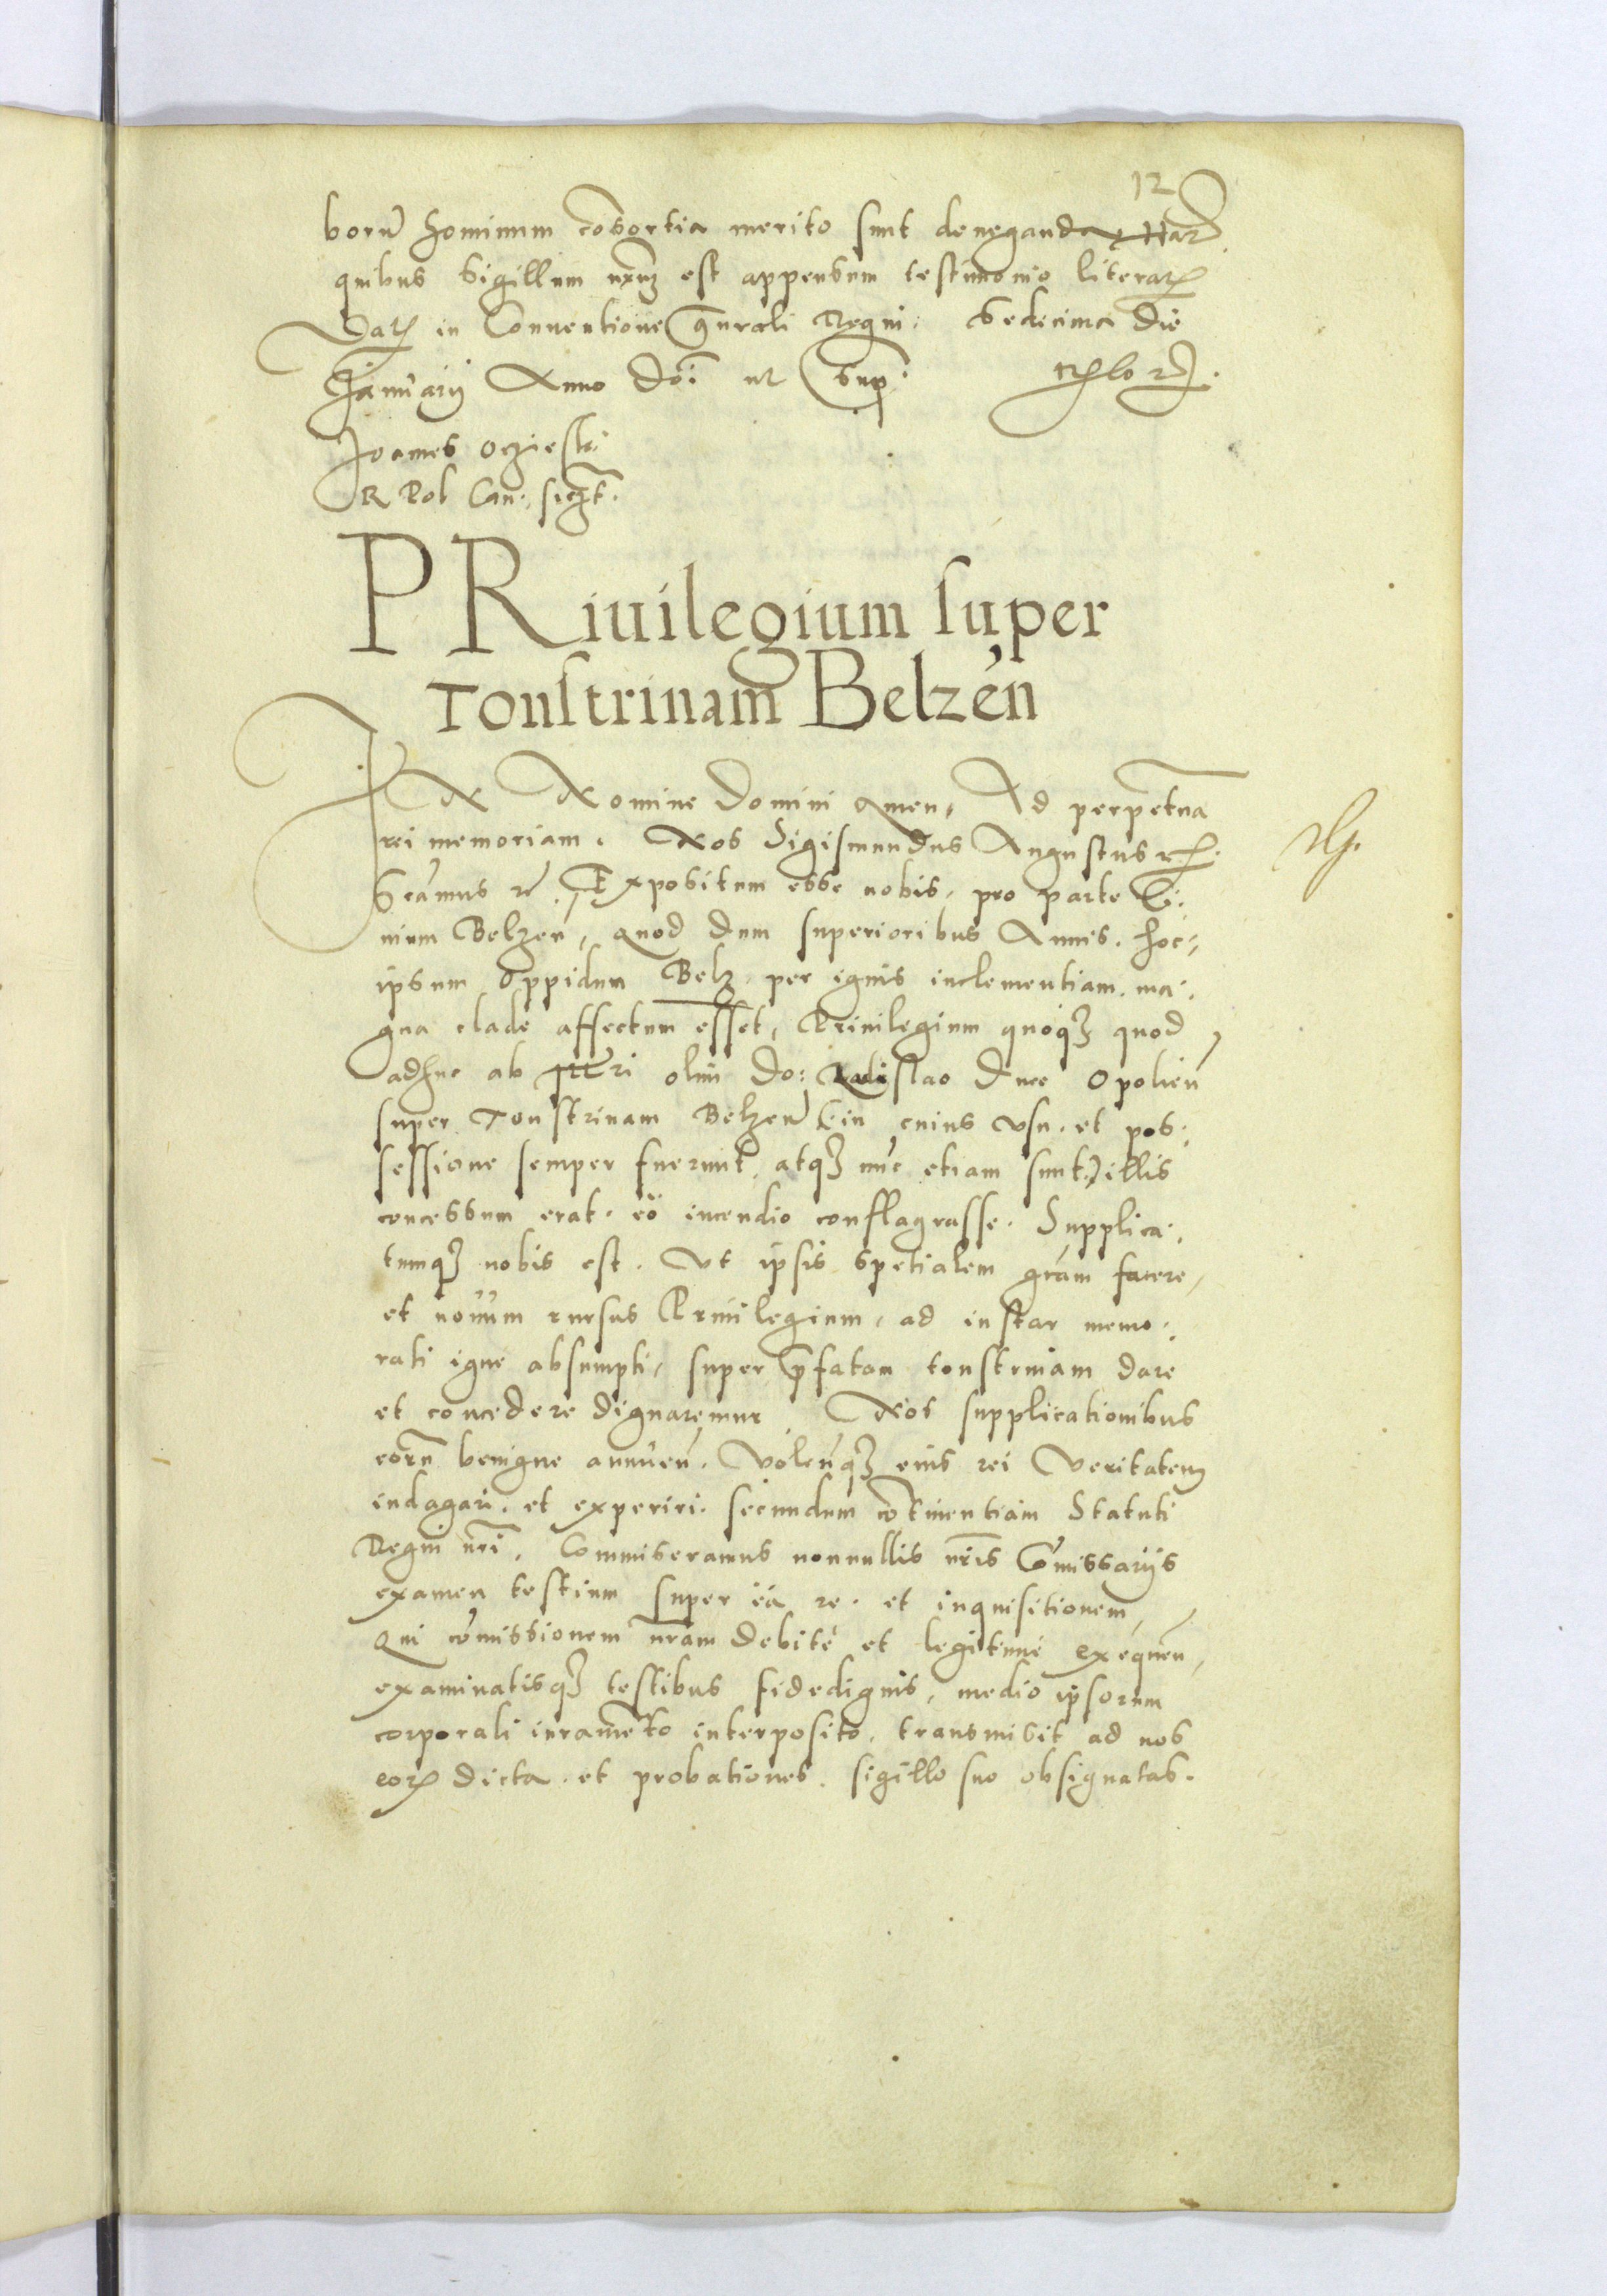 12
borū hominum cōsortia merito sunt deneganda, Har
quibus Sigillum nr̄um est appensum testimonio literarꝝ
Datꝝ in Conuentione gn̄rali Regni: Sedecima Die
Januarij Anno Do͞i. ut sup͞.
Joannes Oczieski
R Pol Can. sicꝫt.
PRiuilegium super
Tonstrinam Belzen̄
IN Nomine Domini Amen, Ad perpetua͞
rei memoriam. Nos Sigismundus Augustus rꝝ.
Scāmus rꝝ. Expositum esse nobis, pro parte Ci:
uium Belzen̄, Quod dum superioribus Annis. hoc=
ipsum Oppidum Belz per ignis inclementiam. ma:
gna clade affectum esset, Priuilegium quoqꝫ quod
adhuc ab Ill͞ri olim Do: Ladislao Duce Opolien̄
super Tonstrinam Belzen̄ (in cuius vsu. et pos:
sessione semper fuerunt, atqꝫ nūc etiam sunt) illis
concessum erat. eo incendio conflagrasse. Supplica:
tumqꝫ nobis est. Vt ipsis spetialem grām facere,
et nouum rursus Priuilegium, ad instar memo:
rati igne absumpti, super p̄fatam tonstrinam dare
et concedere dignaremur. Nos supplicationibus
eorū benigne annuen̄. Volen̄qꝫ eius rei Veritatem
indagari. et experiri. secundum cōtinentiam Statuti
Regni nr̄i. Commiseramus nonnullis nr̄is Cōmissarijs
examen testium super ea re. et inquisitionem,
Qui cōmissionem nr̄am debite et legitime exequen̄,
examinatisqꝫ testibus fidedignis, medio ipsorum
corporali iuramēto interposito. transmisit ad nos
eorꝝ dicta. et probationes. sigillo suo obsignatas.